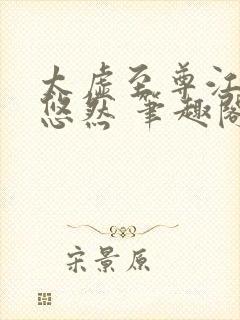 太虚至尊江
悠然 笔趣阁
宋景原